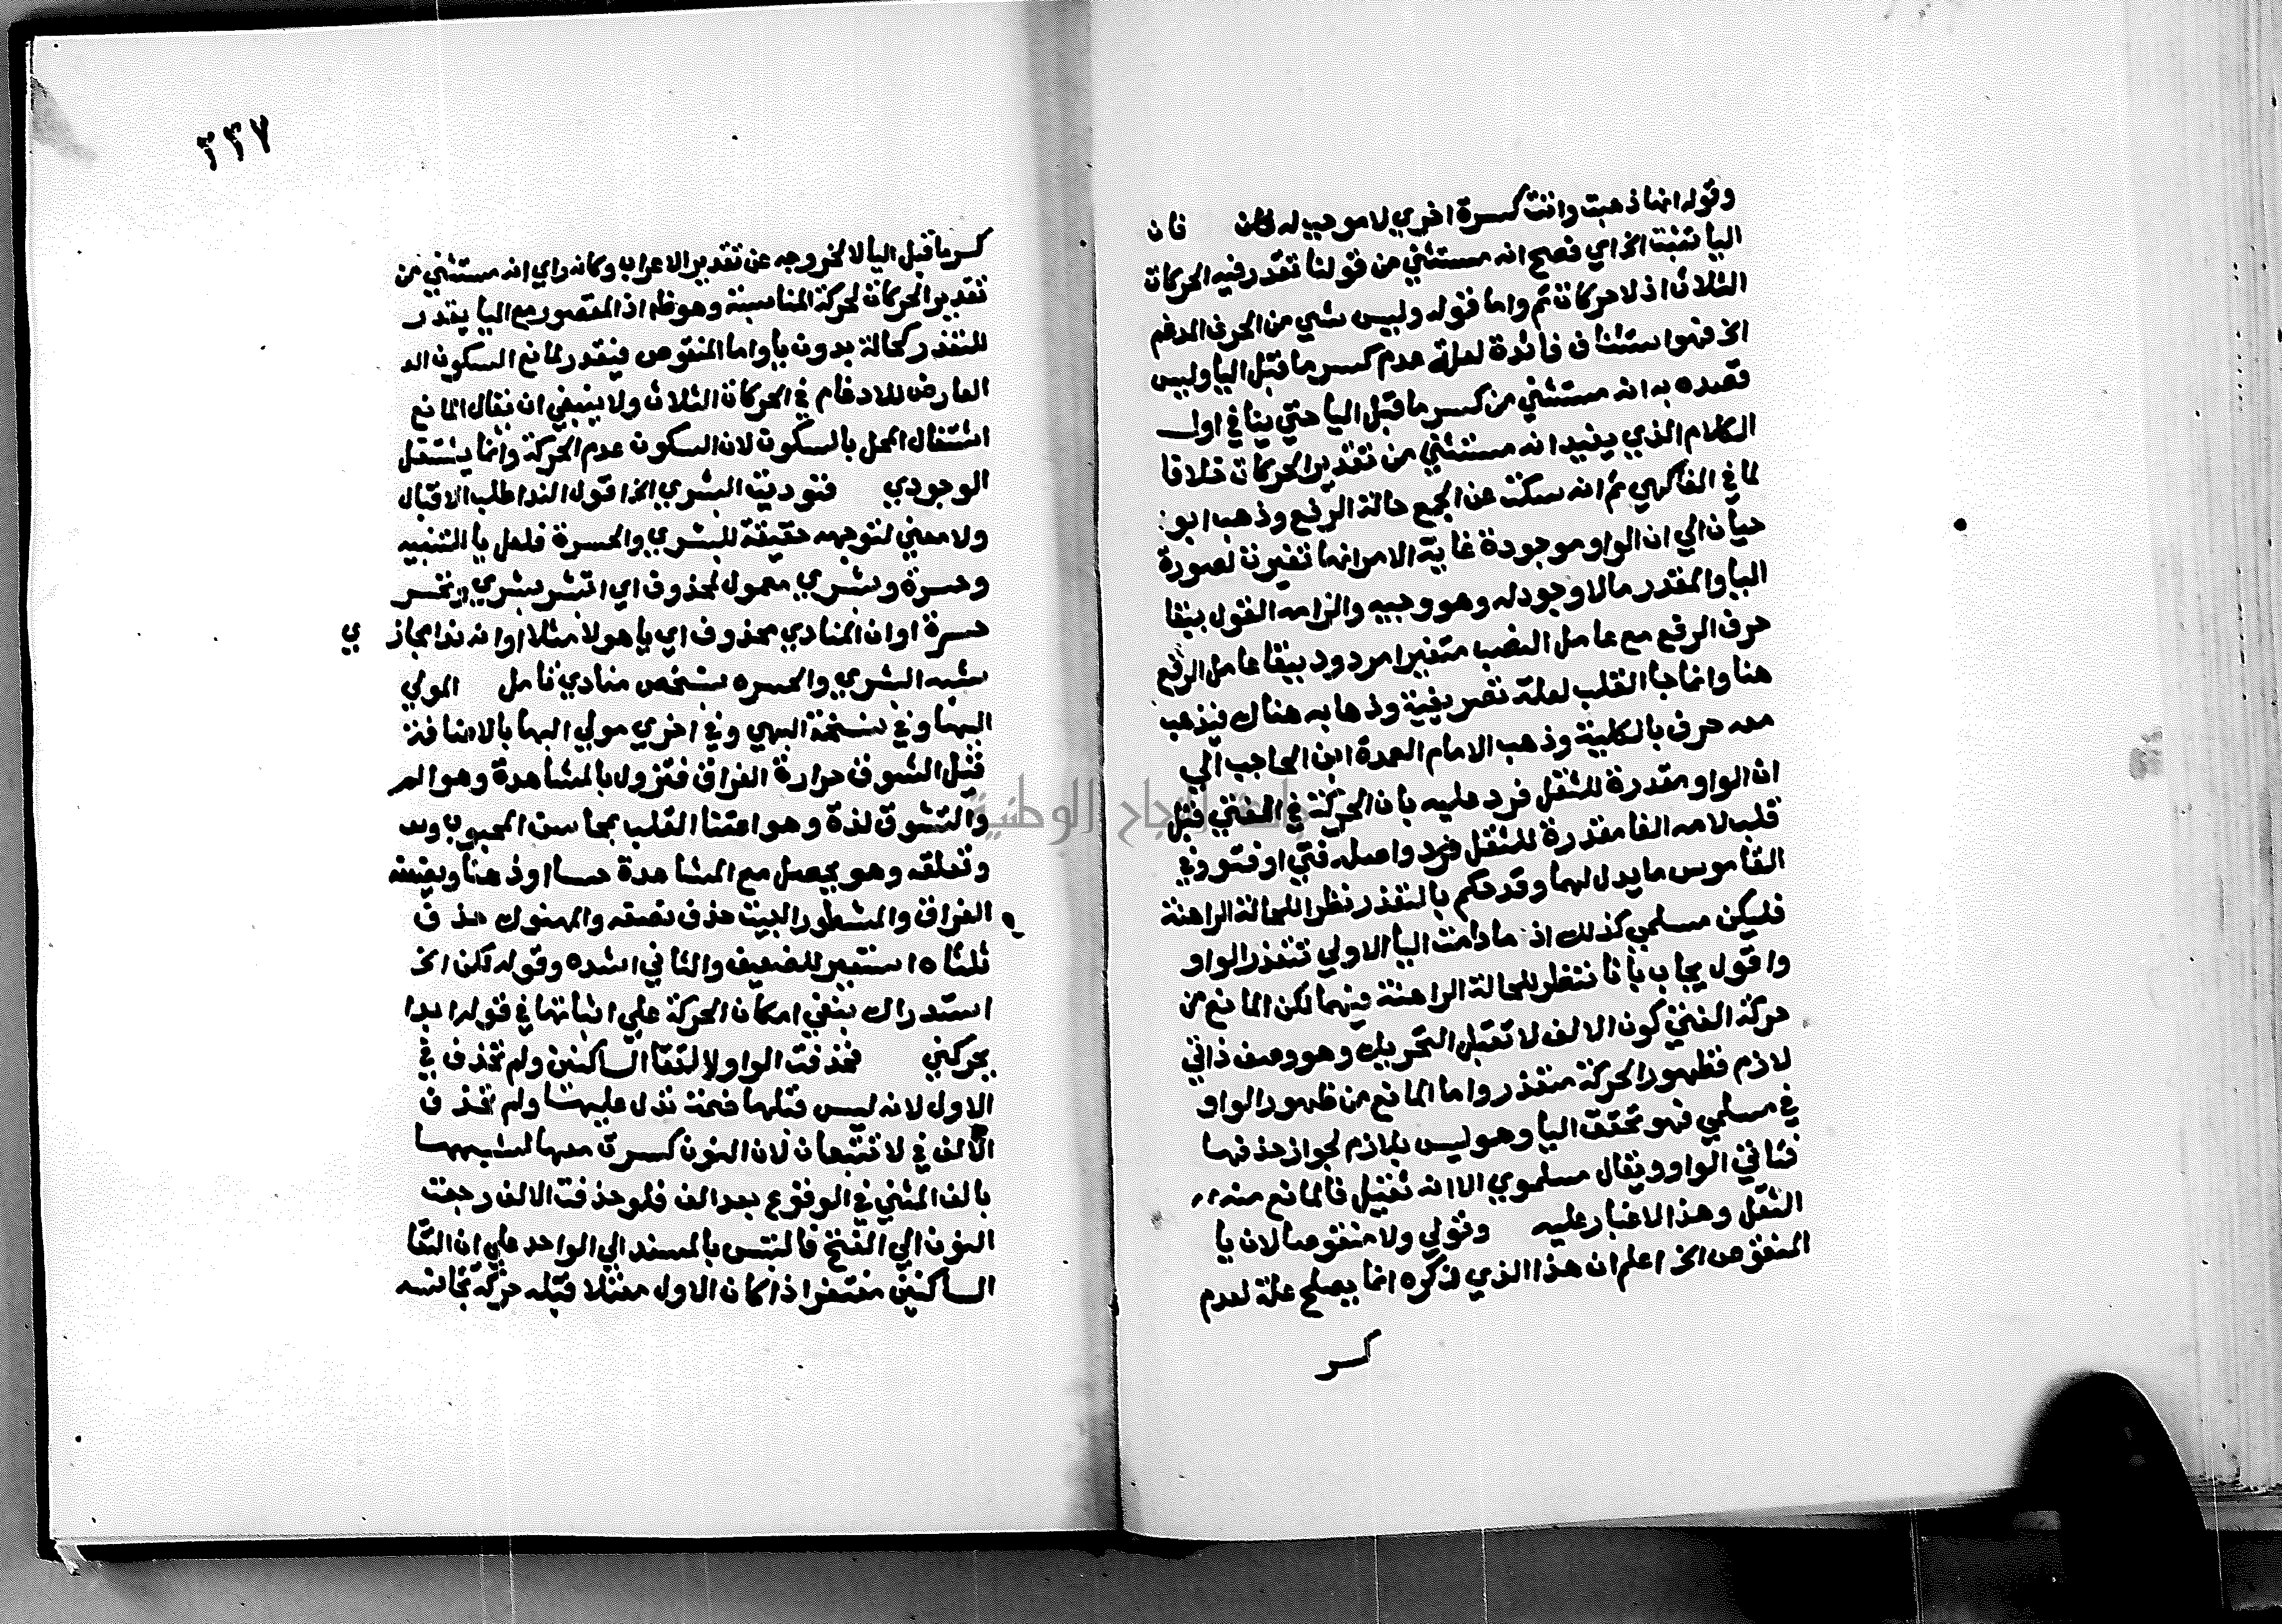 وقوله انها ذهبت واتت كسرة اخري لا موجب له فان
اليا تثبت الخ اي فصح انه مستثني من قولنا تقدر فيه الحركات
الثلاث اذ لا حركات ثم واما قوله وليس شي من الحرف المدغم
الخ فهو استئناف فائدة لعلة عدم كسر ما قبل اليا وليس
قصده به انه مستثني من كسر ما قبل اليا حتي ينافي اول
الكلام الذي يفيد انه مستثني من تقدير الحركات خلافا
لما في الفاكهي ثم انه سكت عن الجمع حالة الرفع وذهب ابو
حيان الي ان الواو موجودة غاية الامر انها تغيرت لصورة
اليا والمقدر ما لا وجود له وهو وجيه والزامه القول ببقا
حرف الرفع مع عامل النصب متغيرا مردود ببقا عامل الرفع
هنا وانما جا القلب لعلة تصريفية وذهابه هناك فيذهب
معه حرف بالكلية وذهب الامام العمدة ابن الحاجب الي
ان الواو مقدرة للثقل فرد عليه بان الحركة في الفتي قبل
قلب لامه الفا مقدرة للثقل فرد واصله فتي او فتو وفي
القاموس ما يدل لهما وقد حكم بالتعذر نظرا للحالة الراهنة
فليكن مسلمي كذلك اذ ما دامت اليا الاولي تتعذر الواو
واقول يجاب بانا ننظر للحالة الراهنة فيهما لكن المانع من
حركة الفتي كون الالف لا تقبل التحريك وهو وصف ذاتي
لازم فظهور الحركة متعذر واما المانع من ظهور الواو
في مسلمي فهو تحقق اليا وهو ليس بلازم لجواز حذفها
فتاتي الواو ويقال مسلموي الا انه ثقيل فالمانع منه
الثقل وهذا لا غبار عليه وقولي ولا منقوصا لان يا
المنقوص الخ اعلم ان هذا الذي ذكره انما يصلح علة لعدم
كسر
٣٣٧
كسر ما قبل اليا لا لخروجه عن تقدير الاعراب وكانه راي انه مستثني من
تقدير الحركات لحركة المناسبة وهو اذ المقصور مع اليا يقدر
للتعذر كحاله بدون يا واما المنقوص فيقدر لمانع السكون
العارض للادغام في الحركات الثلاث ولا ينبغي ان يقال المانع
اشتغال المحل بالسكون لان السكون عدم الحركة وانما يشتغل
الوجودي فنوديت البشري الخ اقول الندا طلب الاقبال
ولا معني لتوجهه حقيقة للبشري والحسرة فلعل يا للتنبيه
وحسرة وبشري معمول لمحذوف اي ابشر بشري وتحسر
حسرة او ان المنادي محذوف اي يا هولا مثلا او انه ندا مجازي
شبه البشري والحسره بشخص منادي تامل المولي
البها وفي نسخة البهي وفي اخري مولي البها بالاضافة
قيل الشوق حرارة الفراق فتزول بالمشاهدة وهو الم
والتشوق لذة وهو اعتنا القلب بمحاسن المحبوب
وتعلقه وهو يحصل مع المشاهدة حسا او ذهنا
الفراق والمشطور البيت حذف نصفه والمهنوك حذف
ثلثاه استعير للضعيف والثاني اشده وقوله لكن الخ
استدراك بنفي امكان الحركة علي اثباتها في قوله ابدا
بحركتي فحذفت الواو لالتقا الساكنين ولم تحذف في
الاول لانه ليس قبلها ضمة تدل عليها ولم تحذف
الالف في لا تتبعان لان النون كسرت معها لشبهها
بالف المثني في الوقوع بعد الف فلو حذفت الالف رجعت
النون الي الفتح فالتبس بالمسند الي الواحد علي ان التقا
الساكنين مغتفر اذا كان الاول معتلا قبله حركة تجانسه